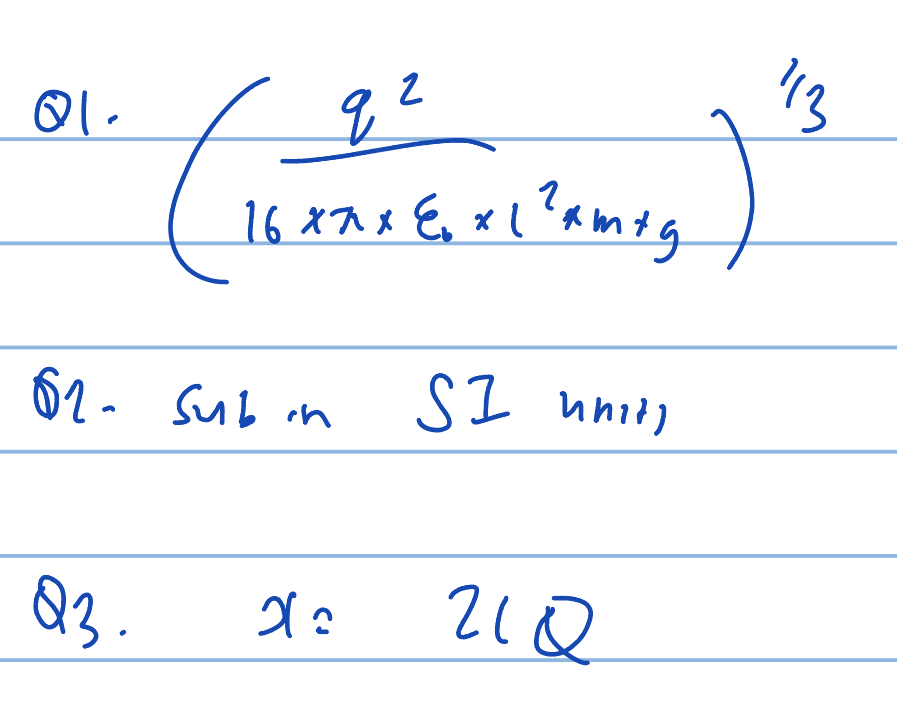 Q1. (q² / 16 × π × ε₀ × l² × m × g)^1/3
Q2. Sub in SI units
Q3. x = 2lQ